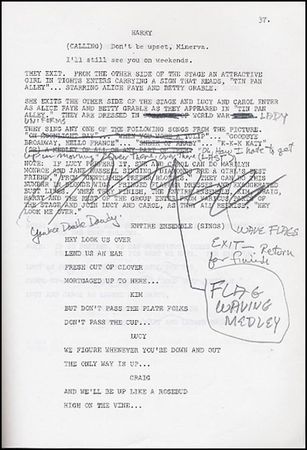 37.
HARRY
(CALLING) Don't be upset, Minerva.
I'll still see you on weekends.
THEY EXIT. FROM THE OTHER SIDE OF THE STAGE AN ATTRACTIVE
GIRL IN TIGHTS ENTERS CARRYING A SIGN THAT READS, "TIN PAN
ALLEY"... STARRING ALICE FAYE AND BETTY GRABLE.
SHE EXITS THE OTHER SIDE OF THE STAGE AND LUCY AND CAROL ENTER
AS ALICE FAYE AND BETTY GRABLE AS THEY APPEARED IN "TIN PAN
ALLEY". THEY ARE DRESSED IN OF WORLD WAR
UNIFORMS
THEY SING ANY ONE OF THE FOLLOWING SONGS FROM THE PICTURE.
"GOODBYE
BROADWAY, HELLO FRANCE"... "K-K-K KATY"
Oh How I Hate to get
Up in Morning Over There
NOTE: IF LUCY PREFERS IT, SHE AND CAROL CAN DO MARILYN
MONROE AND JANE RUSSELL SINGING, DIAMONDS ARE A GIRL'S BEST
FRIEND,
HARRY AND THE REST OF THE GROUP ENTER
STAGE AND JOIN LUCY AND CAROL, AS THEY ALL SING, "HEY
LOOK ME OVER."
Yankee Doodle Dandy.
WAVE FLAGS
EXIT — Return
for finish
ENTIRE ENSEMBLE (SINGS)
HEY LOOK US OVER
LEND US AN EAR
FRESH OUT OF CLOVER
MORTGAGED UP TO HERE...
FLAG
WAVING
MEDLEY
KIM
BUT DON'T PASS THE PLATE FOLKS
DON'T PASS THE CUP...
LUCY
WE FIGURE WHENEVER YOU'RE DOWN AND OUT
THE ONLY WAY IS UP...
CRAIG
AND WE'LL BE UP LIKE A ROSEBUD
HIGH ON THE VINE...